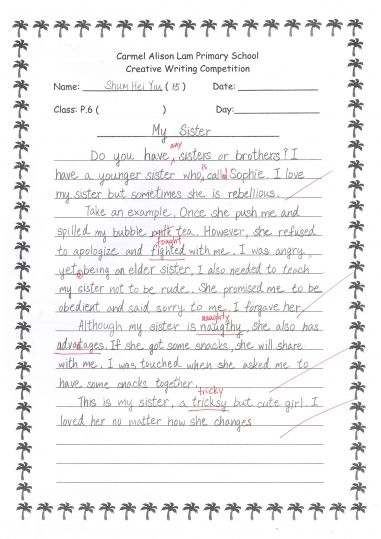 Carmel Alison Lam Primary School
Creative Writing Competition
Name: Shum Hei Yiu ( 15 ) Date:
Class: P.6 ( ) Day:
My Sister
any
Do you have sisters or brothers? I
is
have a younger sister who called Sophie. I love
my sister but sometimes she is rebellious.
Take an example. Once she push me and
spilled my bubble milk tea. However, she refused
fought
to apologize and fighted with me. I was angry,
yet being an elder sister, I also needed to teach
my sister not to be rude. She promised me to be
obedient and said sorry to me. I forgave her.
naughty
Although my sister is natigthy, she also has
advantages. If she got some snacks, she will share
with me. I was touched when she asked me to
have some snacks together.
tricky
This is my sister, a tricksy but cute girl. I
loved her no matter how she changes